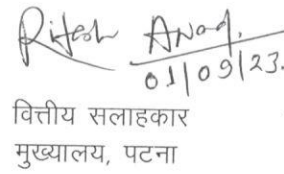 Ritesh Anand.
01/09/23.
वित्तीय सलाहकार
मुख्यालय, पटना